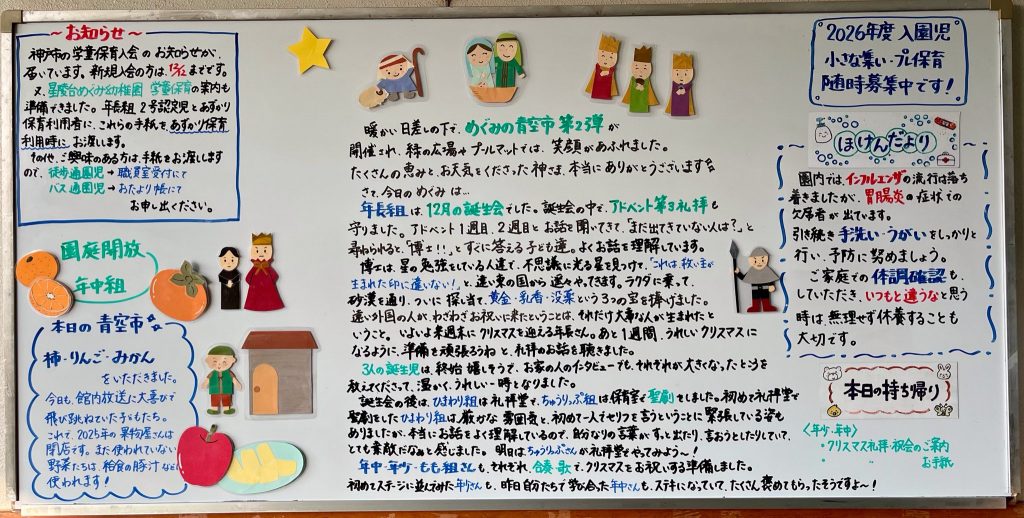 ～お知らせ～
神戸市の学童保育入会のお知らせが、
届いています。新規入会の方は、12/12までです。
又、星陵台めぐみ幼稚園 学童保育の案内も
準備できました。年長組 2号認定児とあずかり
保育利用者に、これらの手紙を、あずかり保育
利用時に お渡しします。
その他、ご興味のある方は、手紙をお渡しします
ので、徒歩通園児→職員室受付にて
バス通園児→おたより帳にて
お申し出ください。
園庭開放
年中組
本日の青空市
柿・りんご・みかん
をいただきました。
今日も、館内放送に大喜びで
飛び跳ねていた子どもたち。
これで、2025年の果物屋さんは
閉店です。まだ使われていない
野菜たちは、給食の豚汁などに
使われます!
暖かい日差しの下で、めぐみの青空市 第2弾が
開催され、緑の広場やプールマットでは、笑顔があふれました。
たくさんの恵みと、お天気をくださった神さま、本当にありがとうございます
さて、今日のめぐみは…
年長組は、12月の誕生会でした。誕生会の中で、アドベント第3礼拝も
守りました。アドベント1週目、2週目とお話を聞いてきて、「まだ出てきていない人は?」と
尋ねられると、「博士!!」とすぐに答える子ども達。よくお話を理解しています。
博士は、星の勉強をしている人達で、不思議に光る星を見つけて、「これは、救い主が
生まれた印に違いない!」と、遠い東の国から遥々やってきます。ラクダに乗って、
砂漠を通り、ついに探し当て、黄金・乳香・没薬という3つの宝を捧げました。
遠い外国の人が、わざわざお祝いに来たということは、それだけ大事な人が生まれたと
いうこと。いよいよ来週末にクリスマスを迎える年長さん。あと1週間、うれしいクリスマスに
なるように、準備を頑張ろうねと、礼拝のお話を聴きました。
3人の誕生児は、終始嬉しそうで、お家の人のインタビューでも、それぞれが大きくなったところを
教えてくださって、温かく、うれしい一時となりました。
誕生会の後は、ひまわり組は礼拝堂で、ちゅうりっぷ組は保育室で聖劇をしました。初めて礼拝堂で
聖劇をしたひまわり組は、厳かな雰囲気と、初めて一人でセリフを言うということに緊張している姿も
ありましたが、本当にお話をよく理解しているので、自分なりの言葉がすっと出たり、言おうとしたりしていて、
とても素敵だなぁと感じました。明日は、ちゅうりっぷさんが礼拝堂でやってみよう～!
年中・年少・もも組さんも、それぞれ、合奏・歌で、クリスマスをお祝いする準備しました。
初めてステージに並んでみた年少さんも、昨日自分たちで学び合った年中さんも、ステキになっていて、たくさん褒めてもらったそうですよ～!
2026年度 入園児
小さな集い・プレ保育
随時募集中です!
ほけんだより
園内では、インフルエンザの流行は落ち
着きましたが、胃腸炎の症状での
欠席者が出ています。
引き続き手洗い・うがいをしっかりと
行い、予防に努めましょう。
ご家庭での体調確認も、
していただき、いつもと違うなと思う
時は、無理せず休養することも
大切です。
本日の持ち帰り
〈年少・年中〉
・クリスマス礼拝・祝会のご案内
お手紙